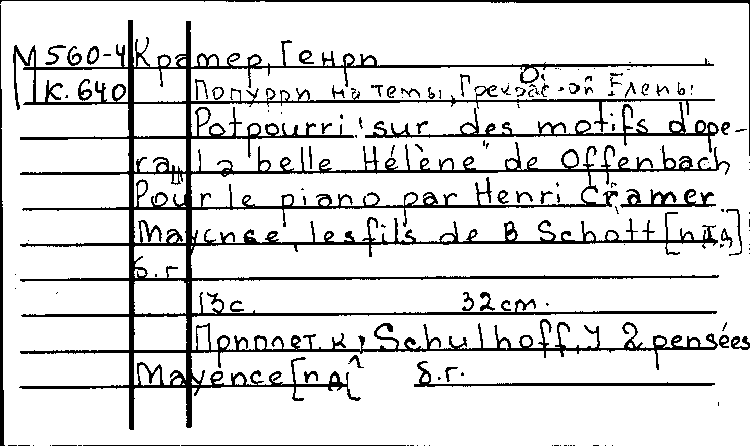 М 560-4 Крамер, Генри
К. 640 Попурри на темы „Прекрасной Елены"
Potpourri sur des motifs d'ope-
ra „la belle Hélène" de Offenbach
Pour le piano par Henri Cramer
Mayence, les fils de B Schott [п.д]
б.г.
13с. 32cm.
Приплет. к: Schulhoff, J 2 pensées
Mayence [п.д] б.г.